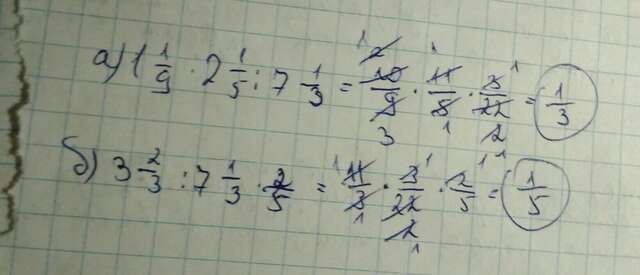 а) 1 1/9 · 2 1/5 : 7 1/3 = 10/9 · 11/5 · 3/22 = 1/3
б) 3 2/3 : 7 1/3 · 2/5 = 11/3 · 3/22 · 2/5 = 1/5